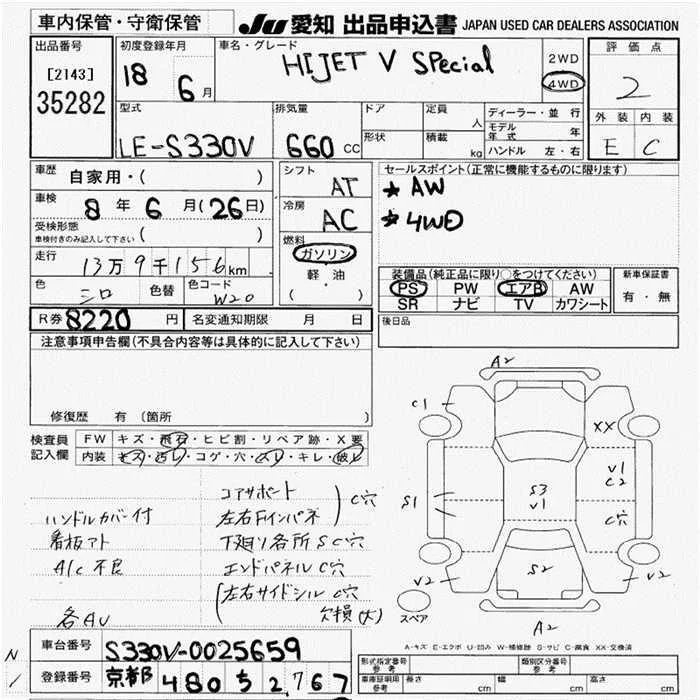 車内保管・守衛保管
JU 愛知 出品申込書 JAPAN USED CAR DEALERS ASSOCIATION
出品番号
[2143]
35282
初度登録年月
18 6月
車名・グレード
HIJET V SPecial
2WD
4WD
評価点
2
外装 内装
E C
型式
LE-S330V
排気量
660 cc
ドア
形状
定員 人
積載 kg
ディーラー・並行
モデル年式 年
ハンドル 左・右
車歴 自家用・( )
車検 8年 6月(26日)
受検形態
車検付きのみ記入して下さい ( )
走行 13万9千156km
色 シロ 色替 色コード W20
R券 8220 円 名変通知期限 月 日
シフト AT
冷房 AC
燃料
ガソリン
軽・油
( )
セールスポイント(正常に機能するものに限ります)
★ AW
★ 4WD
装備品(純正品に限り○をつけてください)
PS PW エアB AW
SR ナビ TV カワシート
新車保証書
有・無
後日品
注意事項申告欄(不具合内容等は具体的に記入して下さい)
修復歴 有(箇所 )
検査員記入欄
FW キズ・飛石・ヒビ割・リペア跡・X要
内装 キズ・汚レ・コゲ・穴・スレ・キレ・破レ
コアサポート
左右Fインパネ ) C穴
ハンドルカバー付
看板アト 下廻り各所SC穴
A/C 不良 エンドパネルC穴
(左右サイドシルC穴
各AU 欠損(大)
A2
C1
XX
V1
C2
S1
S3
V1
C穴
V2
S2
V2
スペア
A2
A-キズ E-エクボ U-凹み W-補修跡 S-サビ C-腐食 XX-交換済
N
車台番号 S330V-0025659
登録番号 京都 480 ち 2767
形式指定番号 参考
類別区分番号 参考
車庫証明用 参考 長さ cm 幅 cm 高さ cm